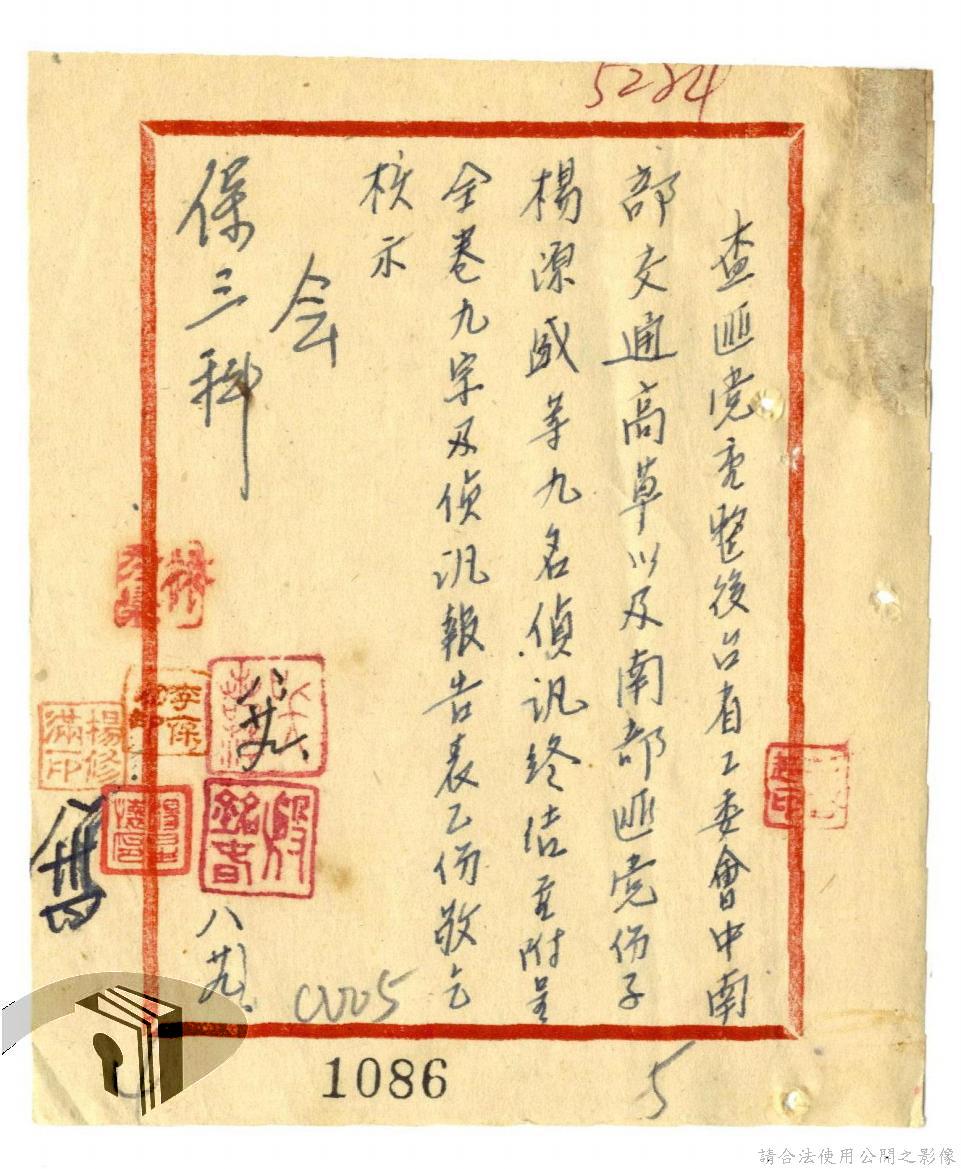 5224
查匪党竞整後台省工委會中南
部交通高草以及南部匪党份子
楊源盛等九名偵訊终结並附呈
全卷九宗及偵訊報告表乙份敬乞
核示
会
保三科
李保
楊修
滿印
殷
八廿九
八廿九
0005
1086
5
請合法使用公開之影像